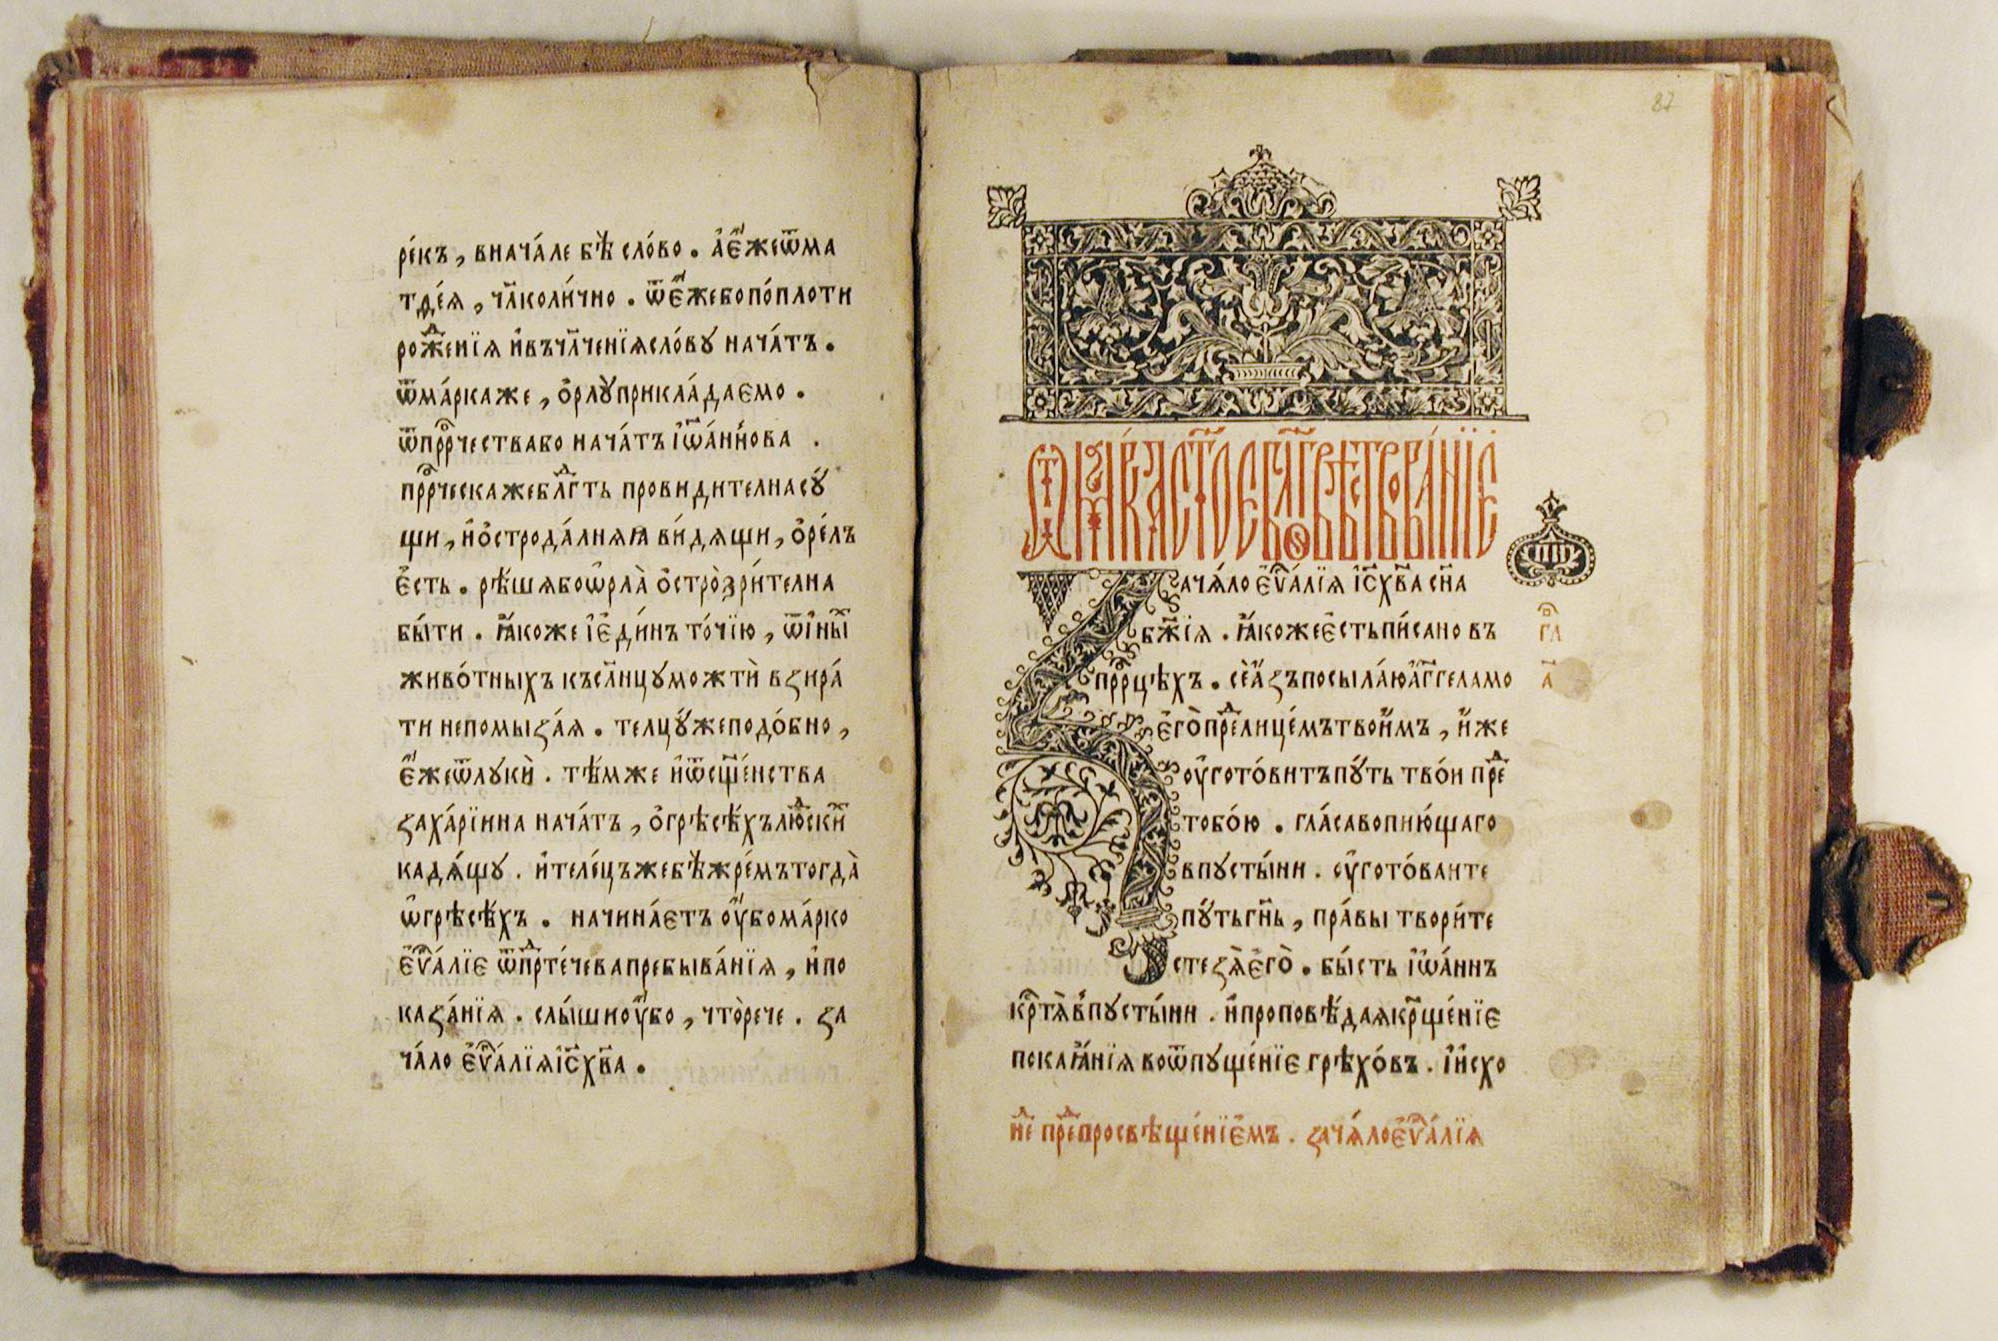 ре́къ, внача́ле бѣ̀ сло́во. а҆є҆́жеѿма
тѳе́я, чл҃коли́чно. ѿє҆́жебопо́плоти
роже́нїя и҆въчл҃ченїясло́ву нача́тъ.
ѿма́ркаже, о҆рлуприкла́даємо.
ѿпрⷪ҇рчествабо нача́тъ і҆ѡа́ннова.
прⷪ҇рческажеблⷣгть провидителнасꙋ́
щи, и҆о҆строда́лняꙗ ви́дящи, о҆ре́лъ
є҆сть. рѣ́шябоѡ҆рла̀ о҆стро̀зри́телна
бы́ти. ꙗ҆́коже і҆є҆ди́нъ то́чїю, ѿи҆ны́х
живо́тныхъ къслн҃цуможтѝ взира́
ти непомыза́я. телцꙋ́жеподо́бно,
є҆́жеѿлукѝ. тѣ́мже и҆ѿсщ҃е́нства
заха́рїина нача́тъ, о҆грѣсѣ́хълюдски́х
кадя́щу. и҆теле́цъжебѣ̀жре́мътогда̀
ѡ҆грѣсѣ́хъ. начина́єтъ ѹ҆́бома́рко
є҆ѵⷢ҇а́лїє ѿпрⷣте́чевапребыва́нїя, и҆по
каза́нїя. слы́шиѹ҆́бо, что̀рече. за
ча́ло є҆ѵⷢ҇а́лїяі҆с҃хв҃а.
87
Ѿма́ркастⷪ҇еблаговѣствова́нїє
Зачя́ло є҆ѵⷢ҇а́лїя і҆с҃хв҃а сн҃а
бж҃їя. ꙗ҆́кожеє҆стьпи́сано въ
прⷪ҇рцѣхъ. сѐа҆́зъпосыла́юа҆́гг҃еламо
є҆го̀прⷣелице́мътвои́мъ, и҆́же
ѹ҆гото́витъпꙋ́ть тво́и прⷣе
тобо́ю. гла́савопию́щаго
впусты́ни. ѹ҆гото́ваите
пꙋ́тьгн҃ь, пра́вы твори́те
стезя̀є҆го̀. бы́сть і҆ѡа́ннъ
крⷭ҇тя̀впусты́ни. и҆проповѣ́даякрⷭ҇ще́нїє
покаꙗ́нїя воѿпуще́нїє грѣхо́въ. і҆и҆схо
гл
а҃
нⷣе прⷣепросвѣще́нїємъ. зачя́лоє҆ѵⷢ҇а́лїя